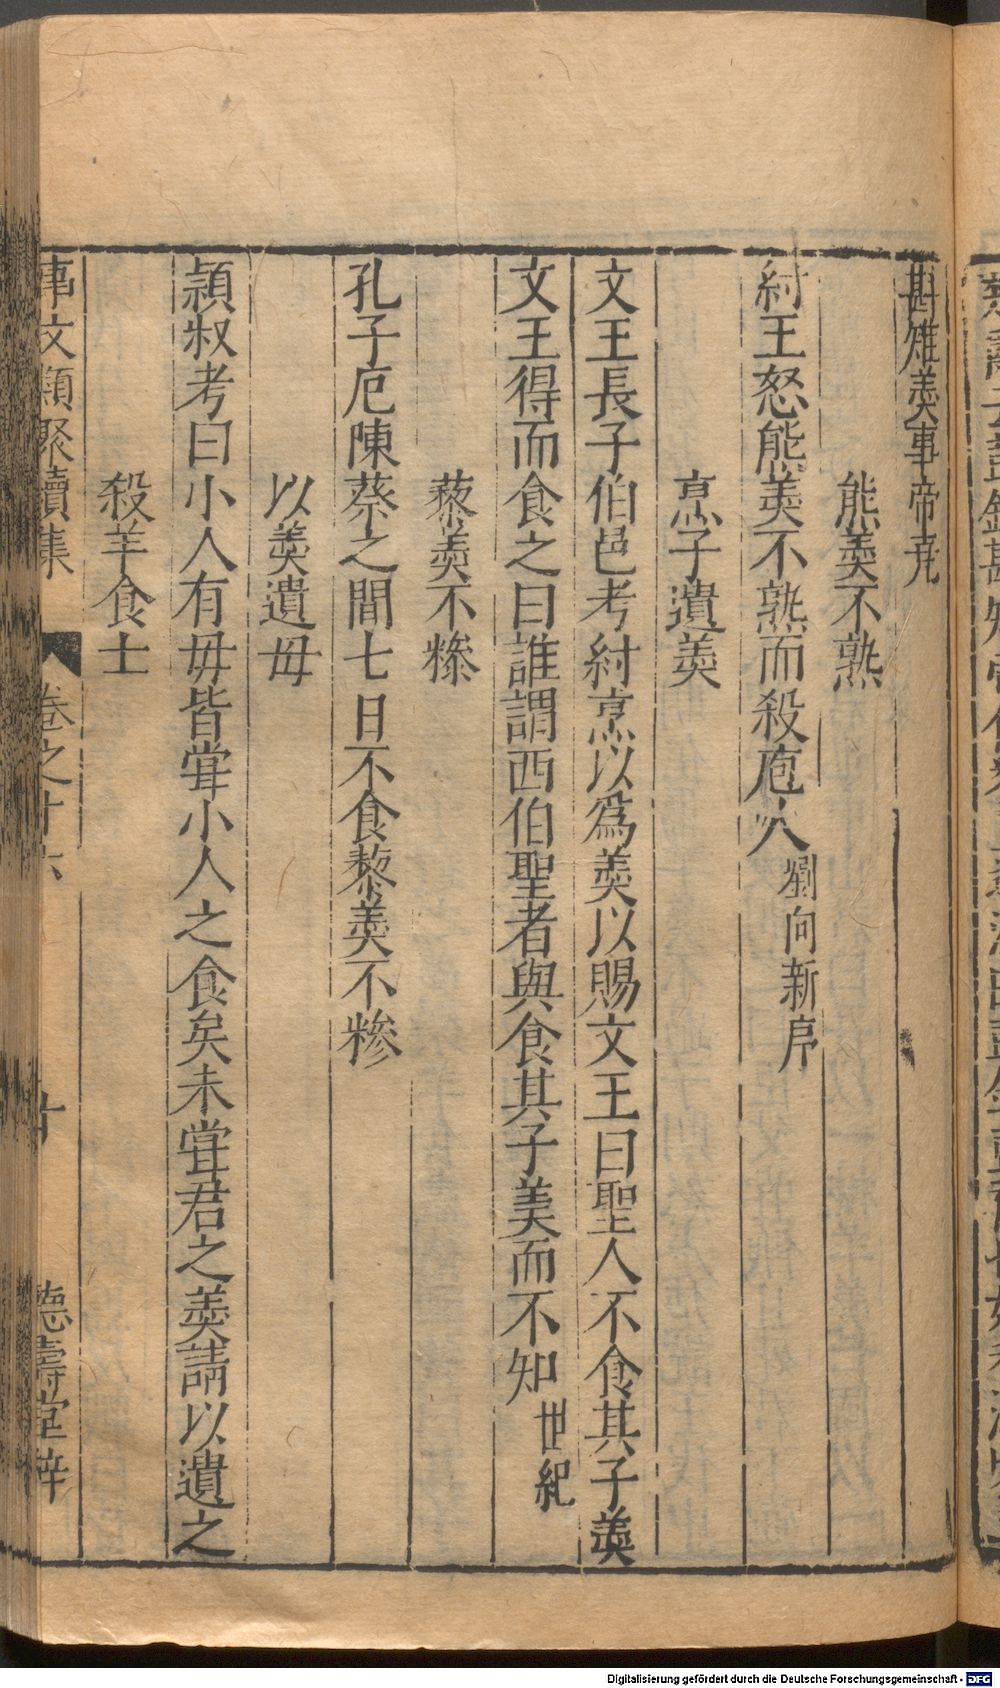 斟雉羙事帝尭
熊羙不熟
紂王怒熊羙不熟而殺庖人劉向新序
烹子遺羙
文王長子伯邑考紂烹以爲羙以賜文王曰聖人不食其子羙
文王得而食之曰誰謂西伯聖者與食其子羙而不知世紀
藜羙不糝
孔子厄陳蔡之間七日不食藜羙不糁
以羙遺母
潁叔考曰小人有毋皆甞小人之食矣未甞君之羙請以遺之
殺羊食士
事文類聚續集 卷之十六 廿 德壽堂梓
Digitalisierung gefördert durch die Deutsche Forschungsgemeinschaft - DFG